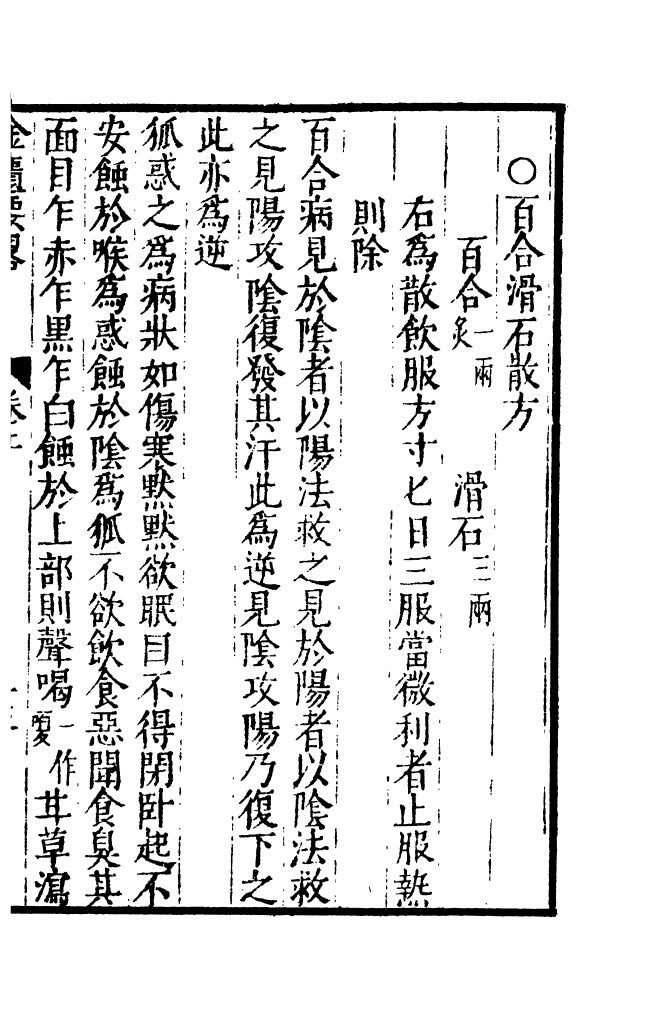 ○百合滑石散方
百合一兩炙　滑石三兩
右爲散飲服方寸匕日三服當微利者止服熱
則除
百合病見於陰者以陽法救之見於陽者以陰法救
之見陽攻陰復發其汗此爲逆見陰攻陽乃復下之
此亦爲逆
狐惑之爲病狀如傷寒默默欲眠目不得閉臥起不
安蝕於喉爲惑蝕於陰爲狐不欲飲食惡聞食臭其
面目乍赤乍黑乍白蝕於上部則聲喝一作嗄甘草瀉